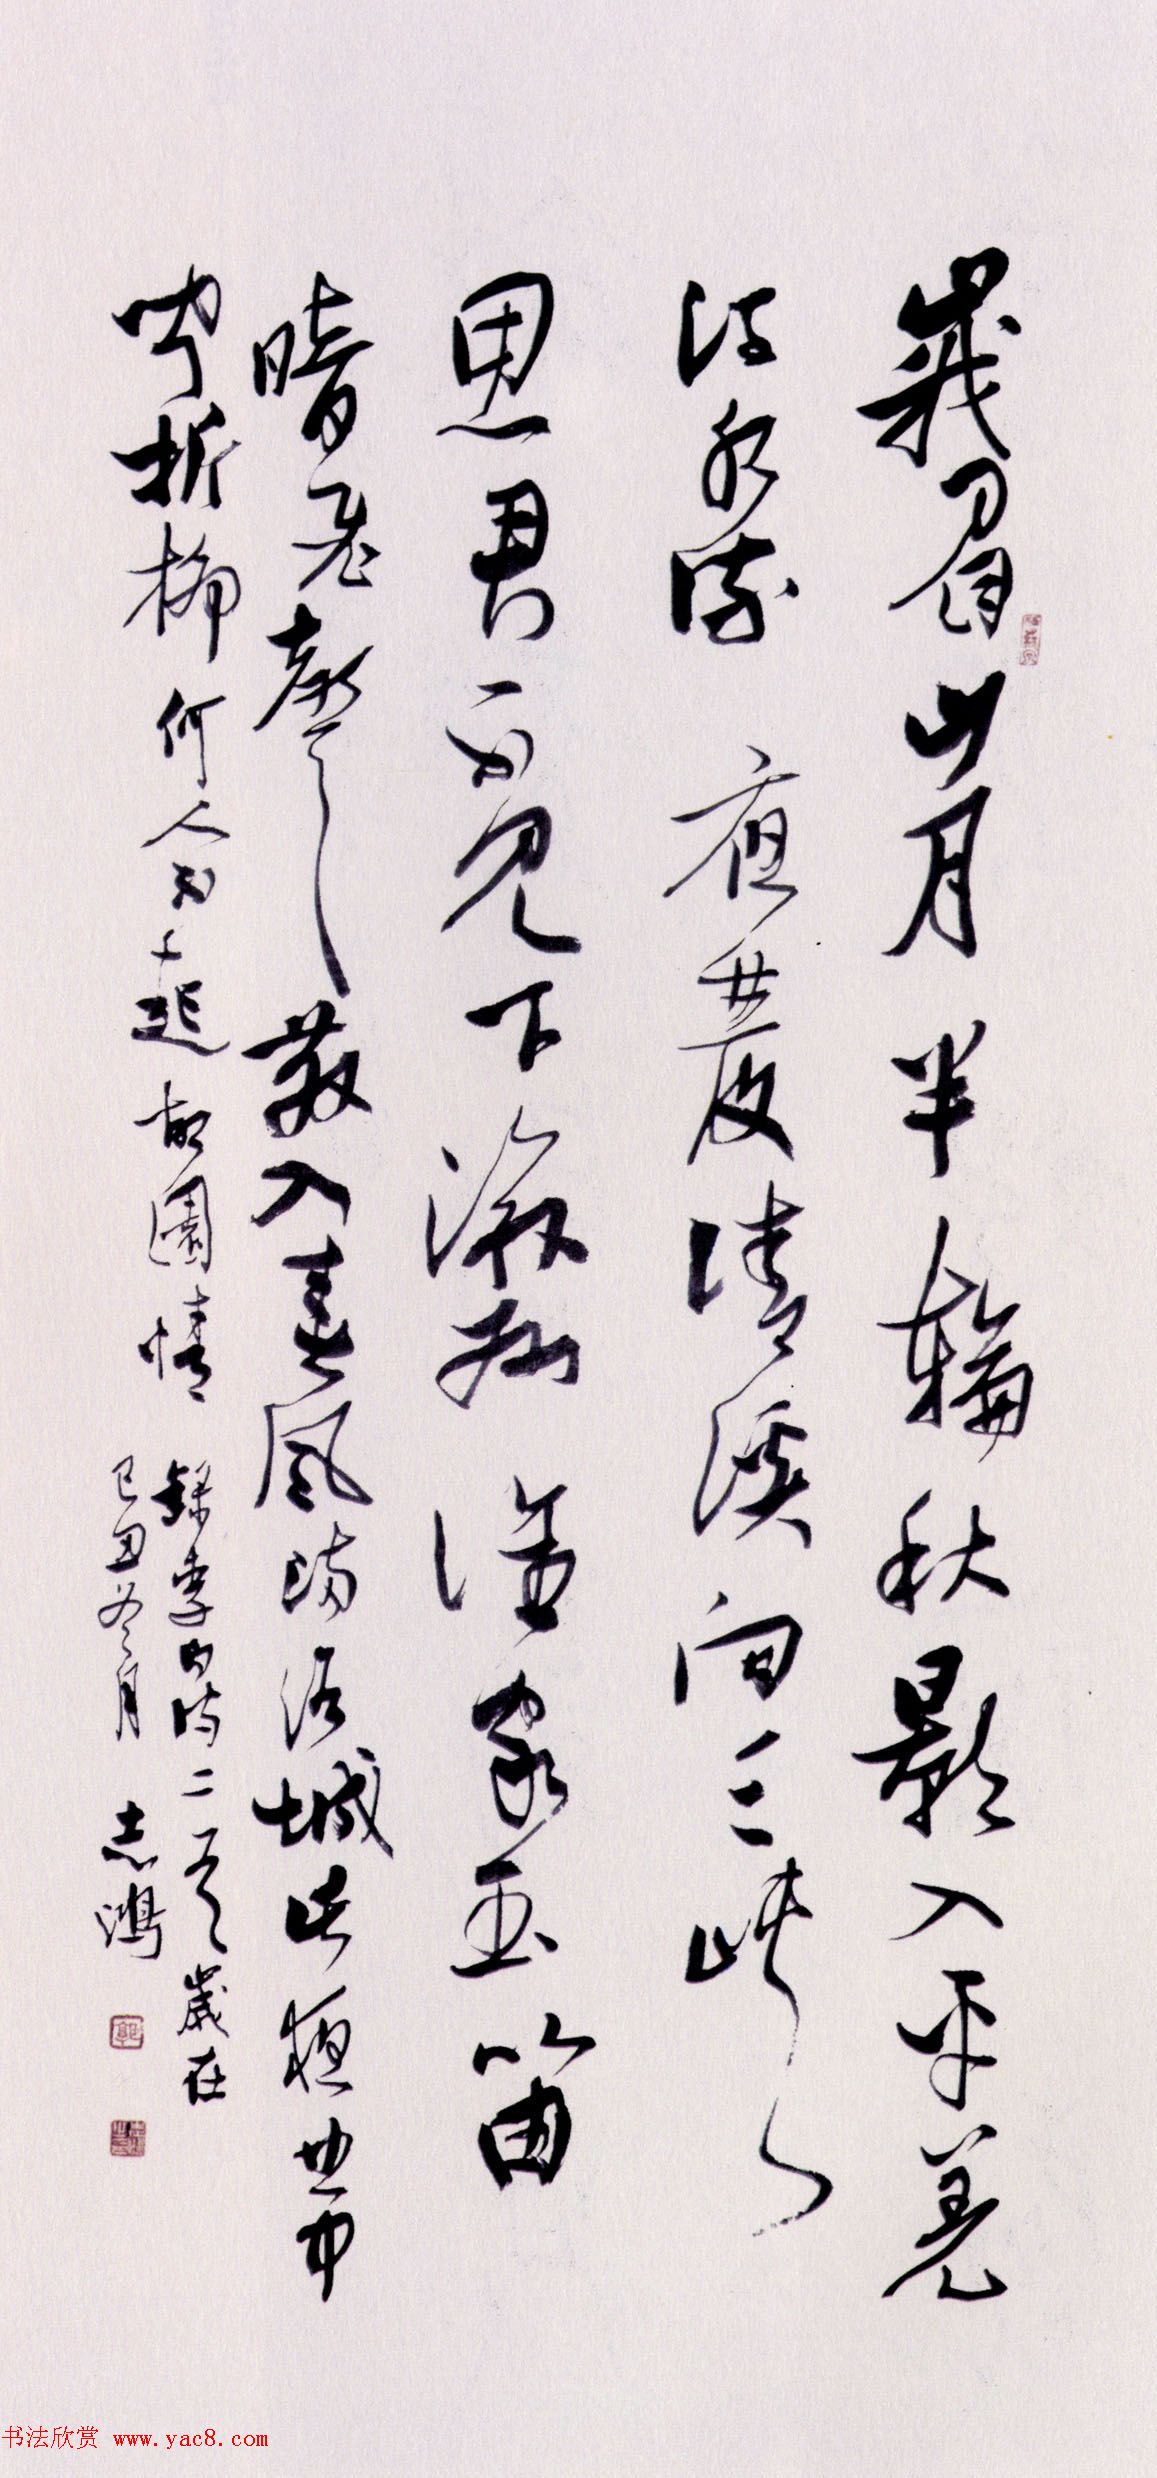 峨眉山月半轮秋影入平羌
江水流夜发清溪向三峡
思君不见下渝州谁家玉笛
暗飞声散入春风满洛城此夜曲中
闻折柳何人不起故园情
录李白诗二首岁在
己丑冬月志鸿
书法欣赏 www.yac8.com